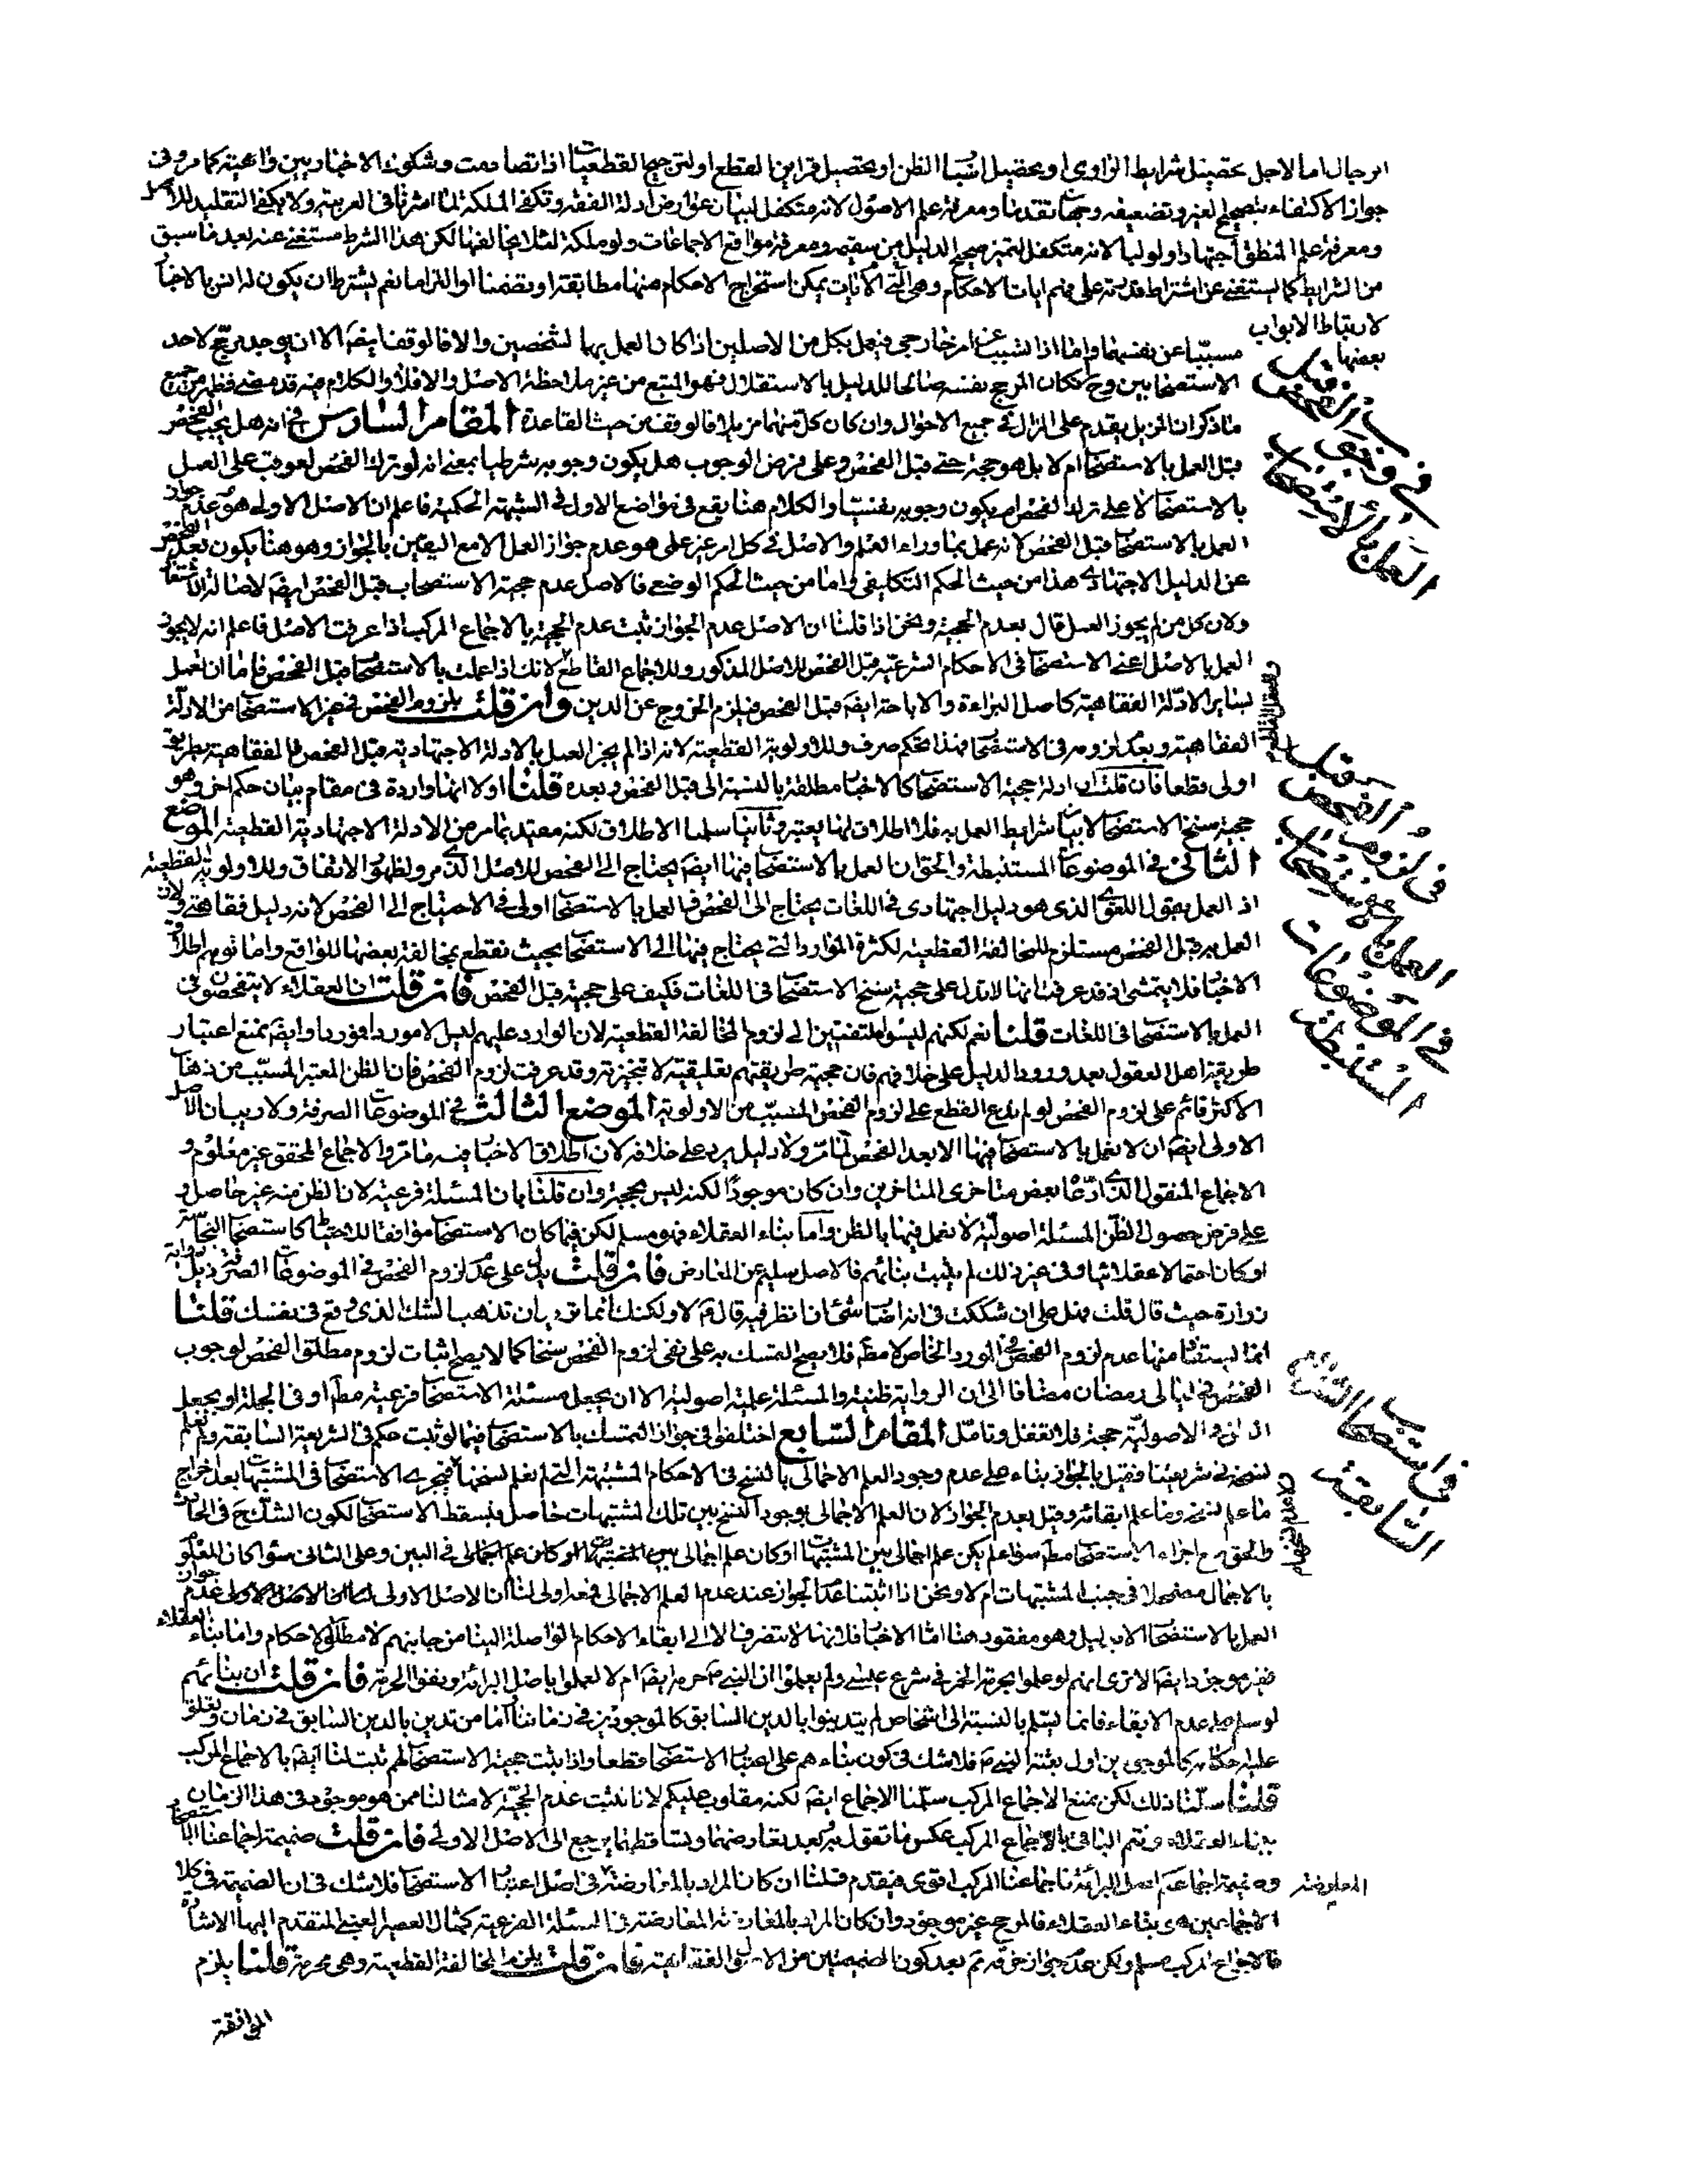 الرجال اما لاجل تحصيل شرايط الراوى او تحصيل اسباب الظن او تحصيل قراين القطع او لترجيح القطعيات اذا تصادمت وشكوك الاخباريين واهية كما مر وفى
جواز الاكتفاء بتصحيح الغير وتضعيفه وجهان تقدما ومعرفة علم الاصول لانه متكفل لبيان عوارض ادلة الفقه وتكفى الملكة لما اشرنا فى العربية ولا يكفى التقليد للاصل
ومعرفة علم المنطق اجتهادا ولو لبا لانه متكفل لتميز صحيح الدليل من سقيمه ومعرفة مواقع الاجماعات ولو ملكة لئلا يخالفها لكن هذا الشرط مستغنى عنه بعد ما سبق
من الشرايط كما يستغنى عن اشتراط قدرته على فهم ايات الاحكام وهى التى الايات يمكن استخراج الاحكام منها مطابقة او تضمنا او التزاما نعم يشترط ان يكون له انس بالاخبار
لارتباط الابواب
بعضها
مسببا عن نفسهما واما اذا تسبب عن امر خارجى فيعمل بكل من الاصلين اذا كان العمل بهما لشخصين والا فالوقف ايضا الا ان يوجد مرجح لاحد
الاستصحابين وح فكان المرجح بنفسه صالحا للدليل بالاستقلال فهو المتبع من غير ملاحظة الاصل والا فلا والكلام فيه قد مضى فظهر من جميع
ما ذكر ان المزيل يقدم على المزال فى جميع الاحوال وان كان كل منهما مزيلا فالوقف من حيث القاعدة المقام السادس فى انه هل يجب الفحص
قبل العمل بالاستصحاب ام لا بل هو حجة حتى قبل الفحص وعلى فرض الوجوب هل يكون وجوبه شرطيا بمعنى انه لو ترك الفحص لعوقب على العمل
بالاستصحاب لا على ترك الفحص ام يكون وجوبه نفسيا والكلام هنا يقع فى مواضع الاول فى الشبهة الحكمية فاعلم ان الاصل الاولى هو عدم جواز
العمل بالاستصحاب قبل الفحص لانه عمل بما وراء العلم والاصل فى كل امر غير علمى هو عدم جواز العمل الا مع اليقين بالجواز وهو هنا يكون بعد الفحص
عن الدليل الاجتهادى هذا من حيث الحكم التكليفى واما من حيث الحكم الوضعى فالاصل عدم حجية الاستصحاب قبل الفحص ايضا لاصالة الاشتغال
ولان كل من لم يجوز العمل قال بعدم الحجية ونحن اذا قلنا ان الاصل عدم الجواز ثبت عدم الحجية بالاجماع المركب اذا عرفت الاصل فاعلم انه لا يجوز
العمل بالاصل اعنى الاستصحاب فى الاحكام الشرعية قبل الفحص للاصل المذكور وللاجماع القاطع لانك اذا عملت بالاستصحاب قبل الفحص فاما ان تعمل
بساير الادلة الفقاهية كاصل البراءة والاباحة ايضا قبل الفحص فيلزم الخروج عن الدين وان قلت بلزوم الفحص فى غير الاستصحاب من الادلة
الفقاهية وبعدم لزومه فى الاستصحاب فهذا تحكم صرف وللاولوية القطعية لانه اذا لم يجز العمل بالادلة الاجتهادية قبل الفحص فالفقاهية بطريق
اولى قطعا فان قلت ان ادلة حجية الاستصحاب كالاخبار مطلقة بالنسبة الى قبل الفحص وبعده قلنا اولا انها واردة فى مقام بيان حكم اخر وهو
حجية سنخ الاستصحاب لا بيان شرايط العمل به فلا اطلاق لها يعتبر وثانيا سلمنا الاطلاق لكنه مقيد بما مر من الادلة الاجتهادية القطعية الموضع
الثانى فى الموضوعات المستنبطة والحق ان العمل بالاستصحاب فيها ايضا يحتاج الى الفحص للاصل الذى مر ولظهور الاتفاق وللاولوية القطعية
اذ العمل بقول اللغوى الذى هو دليل اجتهادى فى اللغات يحتاج الى الفحص فالعمل بالاستصحاب اولى فى الاحتياج الى الفحص لانه دليل فقاهتى ولان
العمل به قبل الفحص مستلزم للمخالفة القطعية لكثرة الموارد التى يحتاج فيها الى الاستصحاب بحيث نقطع بمخالفة بعضها للواقع واما توهم اطلاق
الاخبار فلا يتمشى اذ قد عرفت انها لا تدل على حجية سنخ الاستصحاب فى اللغات فكيف على حجية قبل الفحص فان قلت ان العقلاء لا يتفحصون فى
العمل بالاستصحاب فى اللغات قلنا نعم لكنهم ليسوا ملتفتين الى لزوم المخالفة القطعية لان الوارد عليهم ليس الا موردا فموردا وايضا نمنع اعتبار
طريقة اهل العقول بعد ورود الدليل على خلافهم فان حجية طريقتهم تعليقية لا تنجيزية وقد عرفت لزوم الفحص فان الظن المعتبر المسبب من ذهاب
الاكثر قائم على لزوم الفحص لو لم ندع القطع على لزوم الفحص المسبب من الاولوية الموضع الثالث فى الموضوعات الصرفة ولا ريب ان الاصل
الاولى ايضا ان لا نعمل بالاستصحاب فيها الا بعد الفحص لما مر ولا دليل يرد على خلافه لان اطلاق الاخبار فيه ما مر والاجماع المحقق غير معلوم و
الاجماع المنقول الذى ادعاه بعض متاخرى المتاخرين وان كان موجودا لكنه ليس بحجة وان قلنا بان المسئلة فرعية لان الظن منه غير حاصل و
على فرض حصول الظن المسئلة اصولية لا نعمل فيها بالظن واما بناء العقلاء فهو مسلم لكن فيما كان الاستصحاب موافقا للاحتياط كاستصحاب النجاسة
او كان احتمالا عقلائيا وفى غير ذلك لم يثبت بنائهم فالاصل سليم عن المعارض فان قلت يدل على عدم لزوم الفحص فى الموضوعات الصرفة ذيل رواية
زرارة حيث قال قلت فهل على ان شككت فى انه اصابه شئ ان انظر فيه قال ع لا ولكنك انما تريد ان تذهب الشك الذى وقع فى نفسك قلنا
انما يستفاد منها عدم لزوم الفحص فى المورد الخاص لا مطلقا فلا يصح التمسك به على نفى لزوم الفحص سنخا كما لا يصح اثبات لزوم مطلق الفحص لوجوب
الفحص فى ليالى رمضان مضافا الى ان الرواية ظنية والمسئلة علمية اصولية الا ان يجعل مسئلة الاستصحاب فرعية مطلقا او فى الجملة او يجعل
الظن فى الاصولية حجة فلا تغفل وتامل المقام السابع اختلفوا فى جواز التمسك بالاستصحاب فيما لو ثبت حكم فى الشريعة السابقة ولم نعلم
نسخه فى شريعتنا فقيل بالجواز بناء على عدم وجود العلم الاجمالى بالنسخ فى الاحكام المشتبهة التى لم نعلم نسخها فيجرى الاستصحاب فى المشتبهات بعد اخراج
ما علم نسخه وما علم ابقائه وقيل بعدم الجواز لان العلم الاجمالى بوجود النسخ بين تلك المشتبهات حاصل فيسقط الاستصحاب لكون الشك ح فى الحادث
والحق منع اجراء الاستصحاب مطلقا سواء لم يكن علم اجمالى بين المشتبهات او كان علم اجمالى فى البين وعلى الثانى سواء كان المعلوم
بالاجمال مضمحلا فى جنب المشتبهات ام لا ونحن اذا اثبتنا عدم الجواز عند عدم العلم الاجمالى فمعه اولى لنا ان الاصل الاولى عدم جواز
العمل بالاستصحاب الا بدليل وهو مفقود هنا اما الاخبار فلانها لا تنصرف الا الى ابقاء الاحكام الواصلة الينا من جانبهم لا مطلق الاحكام واما بناء العقلاء
فغير موجود ايضا الا ترى انهم لو علموا بحرمة الخمر فى شرع عيسى ولم يعلموا ان النبى ص حرمه ايضا ام لا لعملوا باصل البرائة ونفوا الحرمة فان قلت ان بنائهم
لو سلم على عدم الابقاء فانما يسلم بالنسبة الى اشخاص لم يتدينوا بالدين السابق كالموجودين فى زماننا اما من تدين بالدين السابق فى زمان وتعلق
عليه احكامه كالموجودين اول بعثة النبى ص فلا شك فى كون بناءهم على اعتبار الاستصحاب قطعا واذا ثبت حجية الاستصحاب لهم ثبت لنا ايضا بالاجماع المركب
قلنا سلمنا ذلك لكن نمنع الاجماع المركب سلمنا الاجماع ايضا لكنه مقلوب عليكم لانا نثبت عدم الحجية لامثالنا ممن هو موجود فى هذا الزمان
ببناء العقلاء ونتم الباقى بالاجماع المركب عكس ما تقول به فبعد تعارضهما وتساقطهما يرجع الى الاصل الاولى فان قلت ضميمة اجماعنا الاستصحاب
وضميمة اجماعكم اصل البرائة فاجماعنا المركب اقوى فيقدم قلنا ان كان المراد بالمعارضة فى اصل اعتبار الاستصحاب فلا شك فى ان الضميمة فى كلا
الاجماعين هى بناء العقلاء فالمرجح غير موجود وان كان المراد بالمعارضة المعارضة فى المسئلة الفرعية كمثال العصير العنبى المتقدم اليها الاشارة
فالاجماع المركب مسلم ولكن عدم جواز خرقه ثم بعد كون الضميمتين من الاصول الفقاهية فان قلت يلزم المخالفة القطعية وهى محرمة قلنا يلزم
الموافقة
فى وجوب الفحص قبل
العمل بالاستصحاب
فى لزوم الفحص قبل
العمل بالاستصحاب
فى الموضوعات
المستنبطة
فى استصحاب الشرايع
السابقة